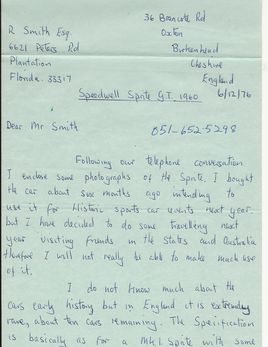 36 Brancote Rd
R Smith Esq. Oxton
6621 Peters Rd Birkenhead
Plantation Cheshire
Florida. 33317 England
6/12/76
Speedwell Sprite G.T. 1960
Dear Mr Smith
051-652-5298
Following our telephone conversation
I enclose some photographs of the Sprite. I bought
the car about six months ago intending to
use it for Historic sports car events next year,
but I have decided to do some travelling next
year visiting friends in the States and Australia
therefore I will not really be able to make much use
of it.
I do not know much about the
cars early history but in England it is extremely
rare, about ten cars remaining. The Specification
is basically as for a MK1 Sprite with some